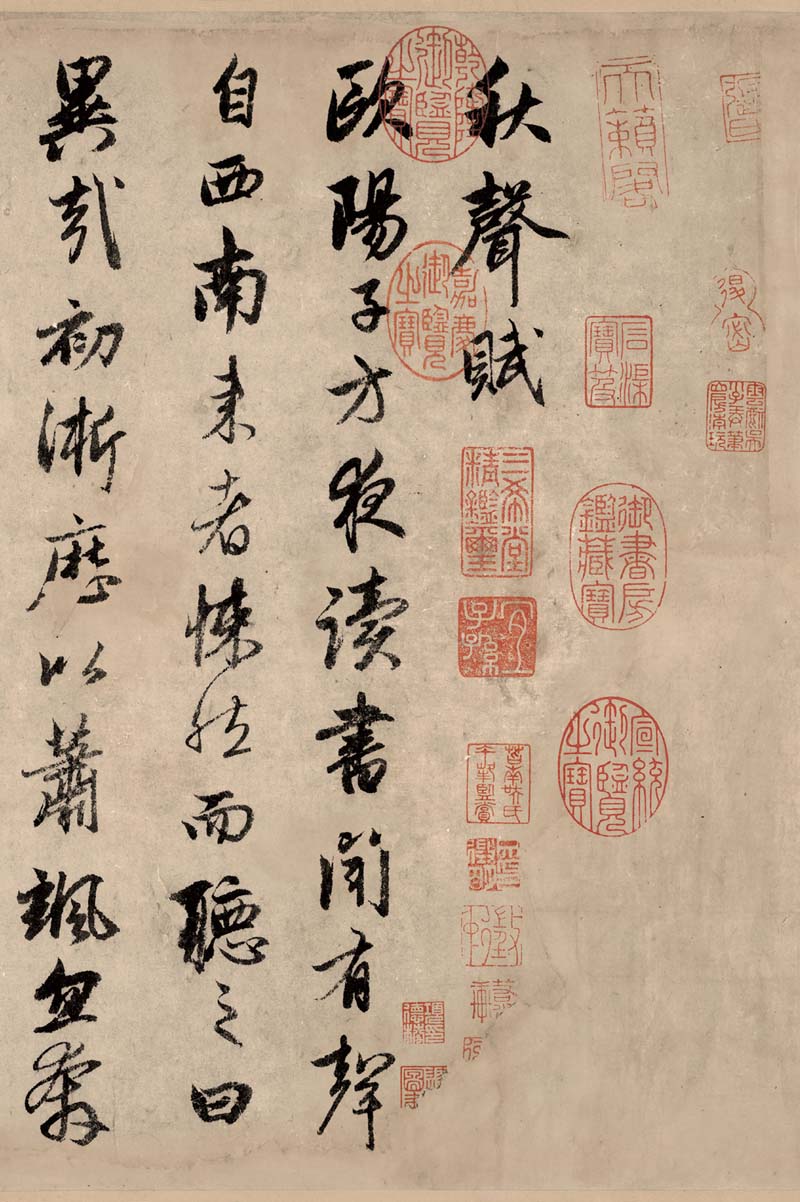 天籟閣
石渠寶笈
御書房鑑藏寶
宣統御覽之寶
秋聲賦
乾隆御覽之寶
嘉慶御覽之寶
三希堂精鑑璽
宜子孫
歐陽子方夜讀書聞有聲
自西南来者悚然而聽之曰
異哉初淅歷以蕭颯忽奔